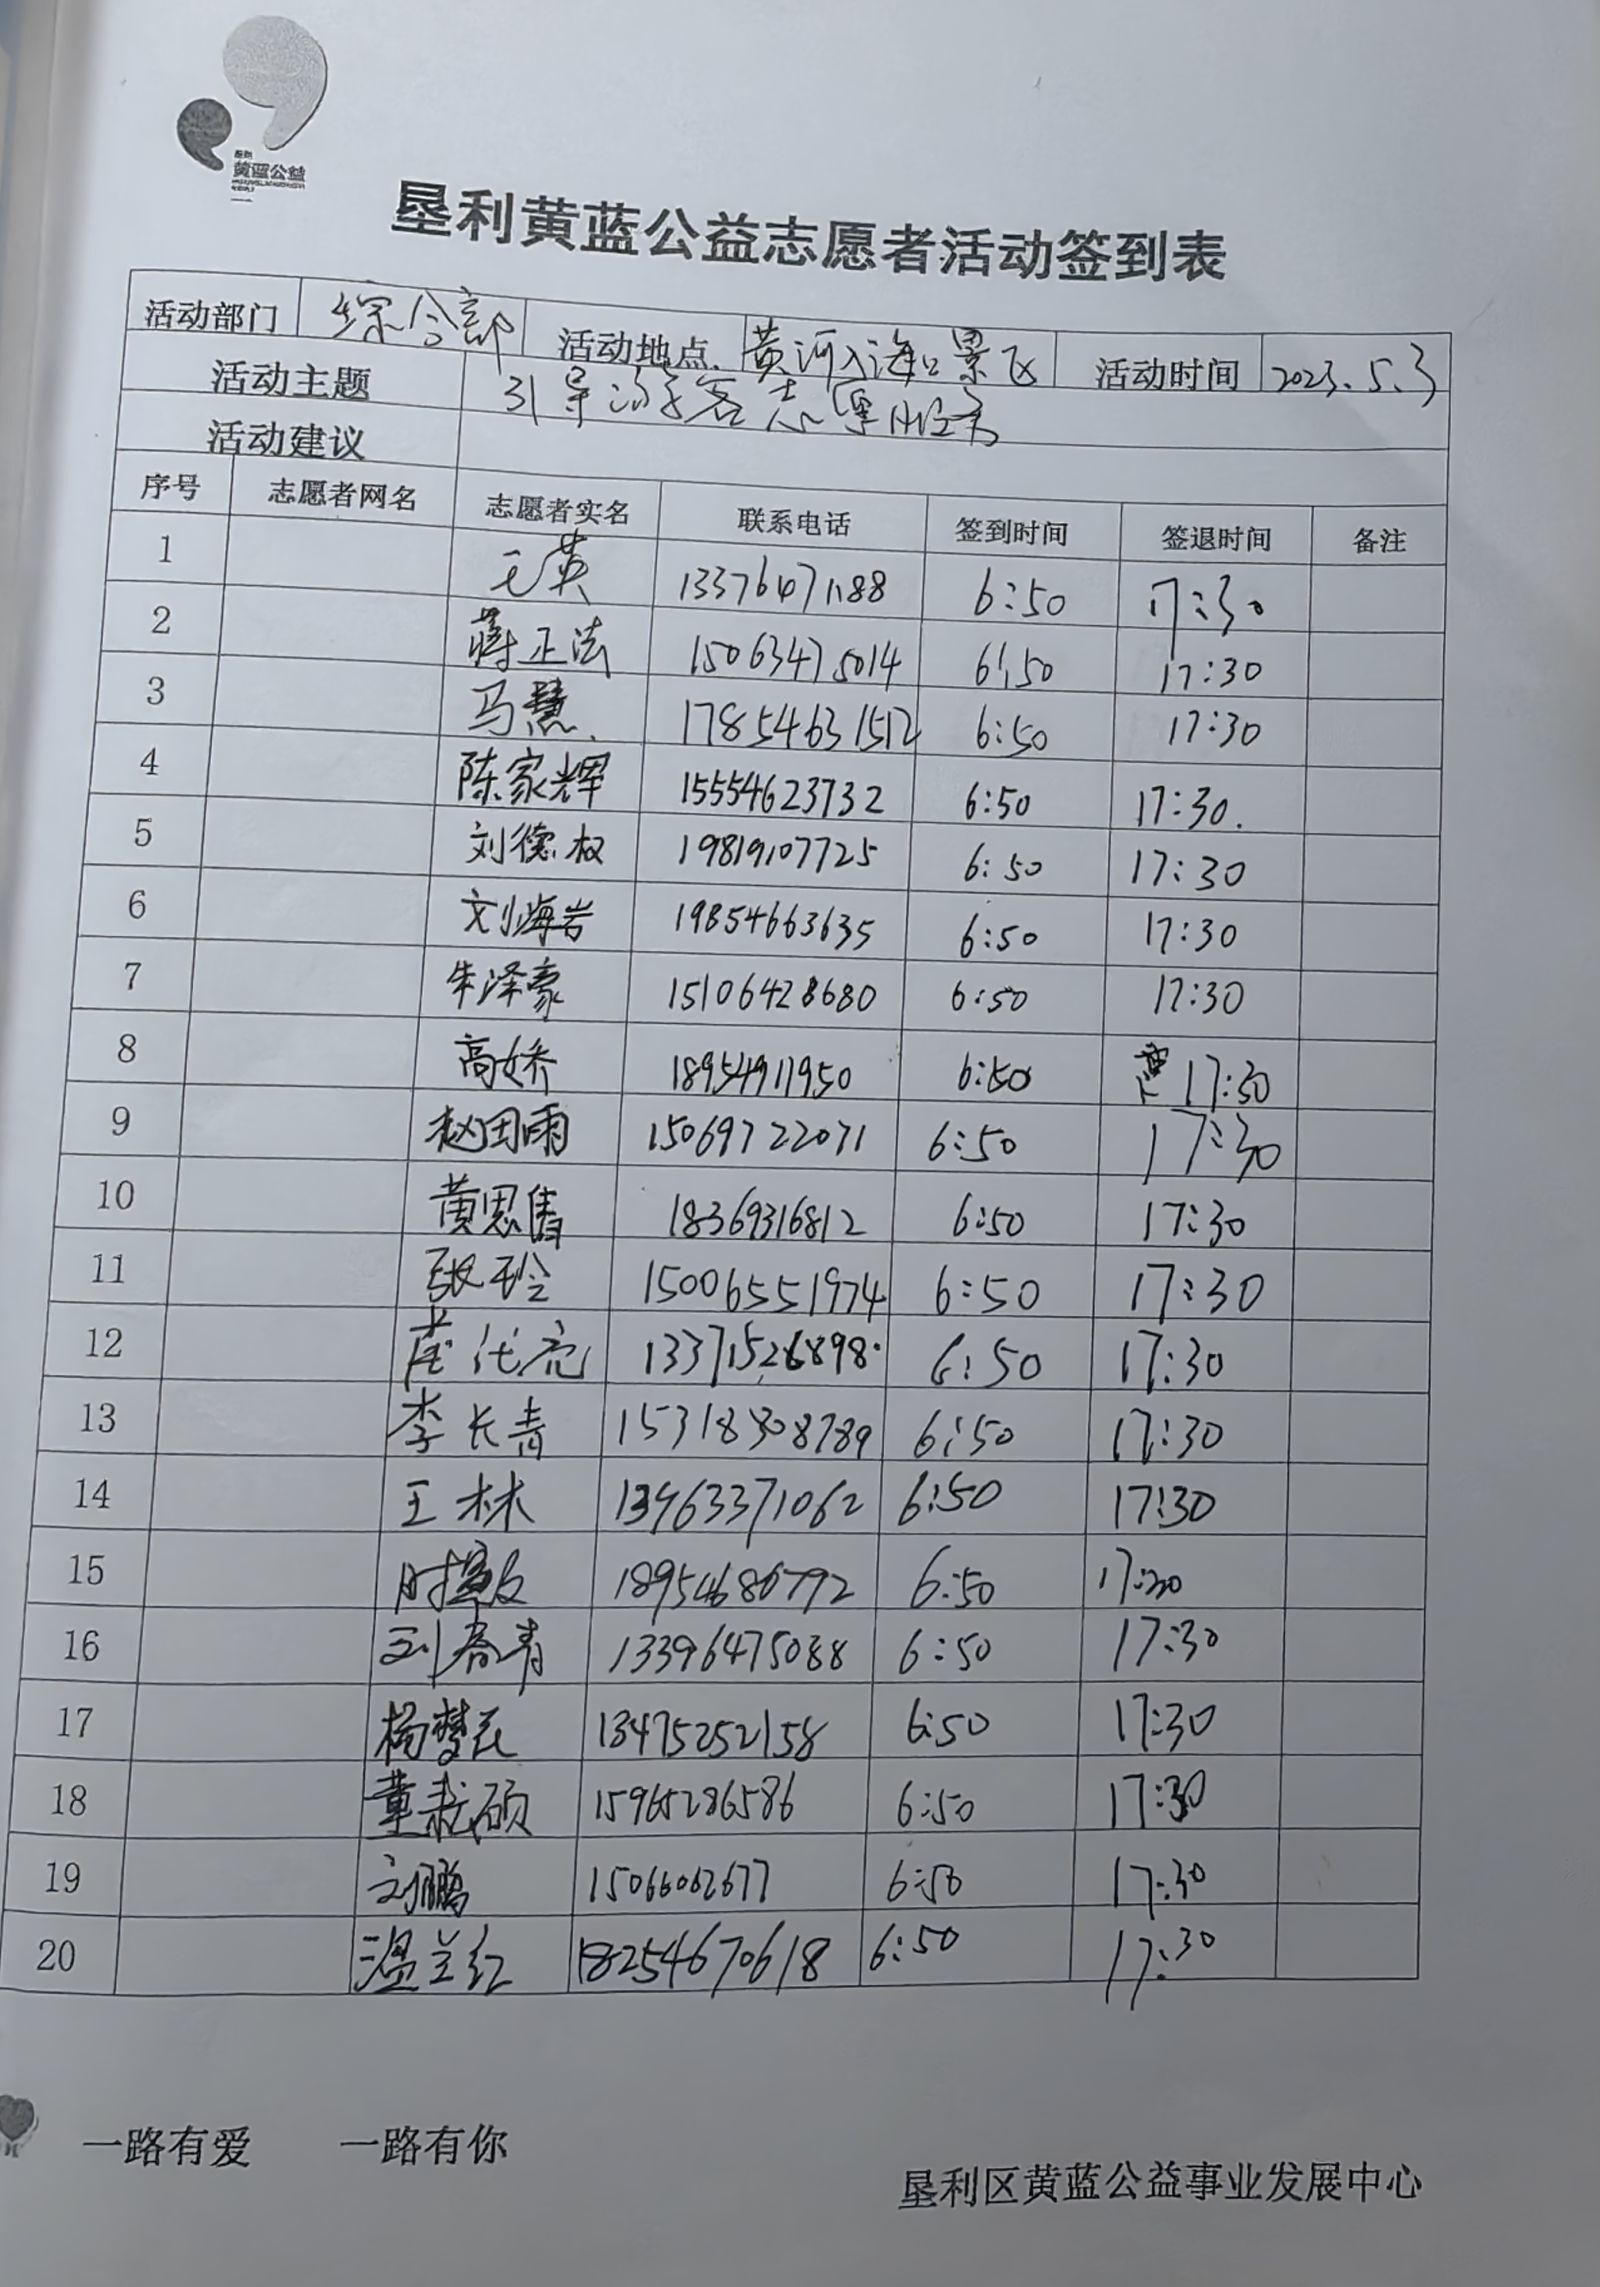 黄蓝公益
垦利黄蓝公益志愿者活动签到表
活动部门 综合部 活动地点 黄河入海口景区 活动时间 2023.5.3
活动主题 引导游客志愿服务
活动建议
序号 志愿者网名 志愿者实名 联系电话 签到时间 签退时间 备注
1 王英 13376471188 6:50 17:30
2 蒋正法 15063475014 6:50 17:30
3 马慧 17854631512 6:50 17:30
4 陈家辉 15554623732 6:50 17:30.
5 刘德权 19819107725 6:50 17:30
6 刘海岩 19854663635 6:50 17:30
7 朱泽豪 15106428680 6:50 17:30
8 高娇 18954911950 6:50 17:30
9 赵田雨 15069722071 6:50 17:30
10 黄思倩 18369316812 6:50 17:30
11 张玲 15006551974 6:50 17:30
12 13371526898 6:50 17:30
13 李长青 15318308789 6:50 17:30
14 王林 13963371062 6:50 17:30
15 18954686792 6:50 17:30
16 刘春青 13396475088 6:50 17:30
17 杨梦 13475252158 6:50 17:30
18 董 硕 15965286586 6:50 17:30
19 刘鹏 15066062677 6:50 17:30
20 温兰红 18254670618 6:50 17:30
一路有爱 一路有你
垦利区黄蓝公益事业发展中心